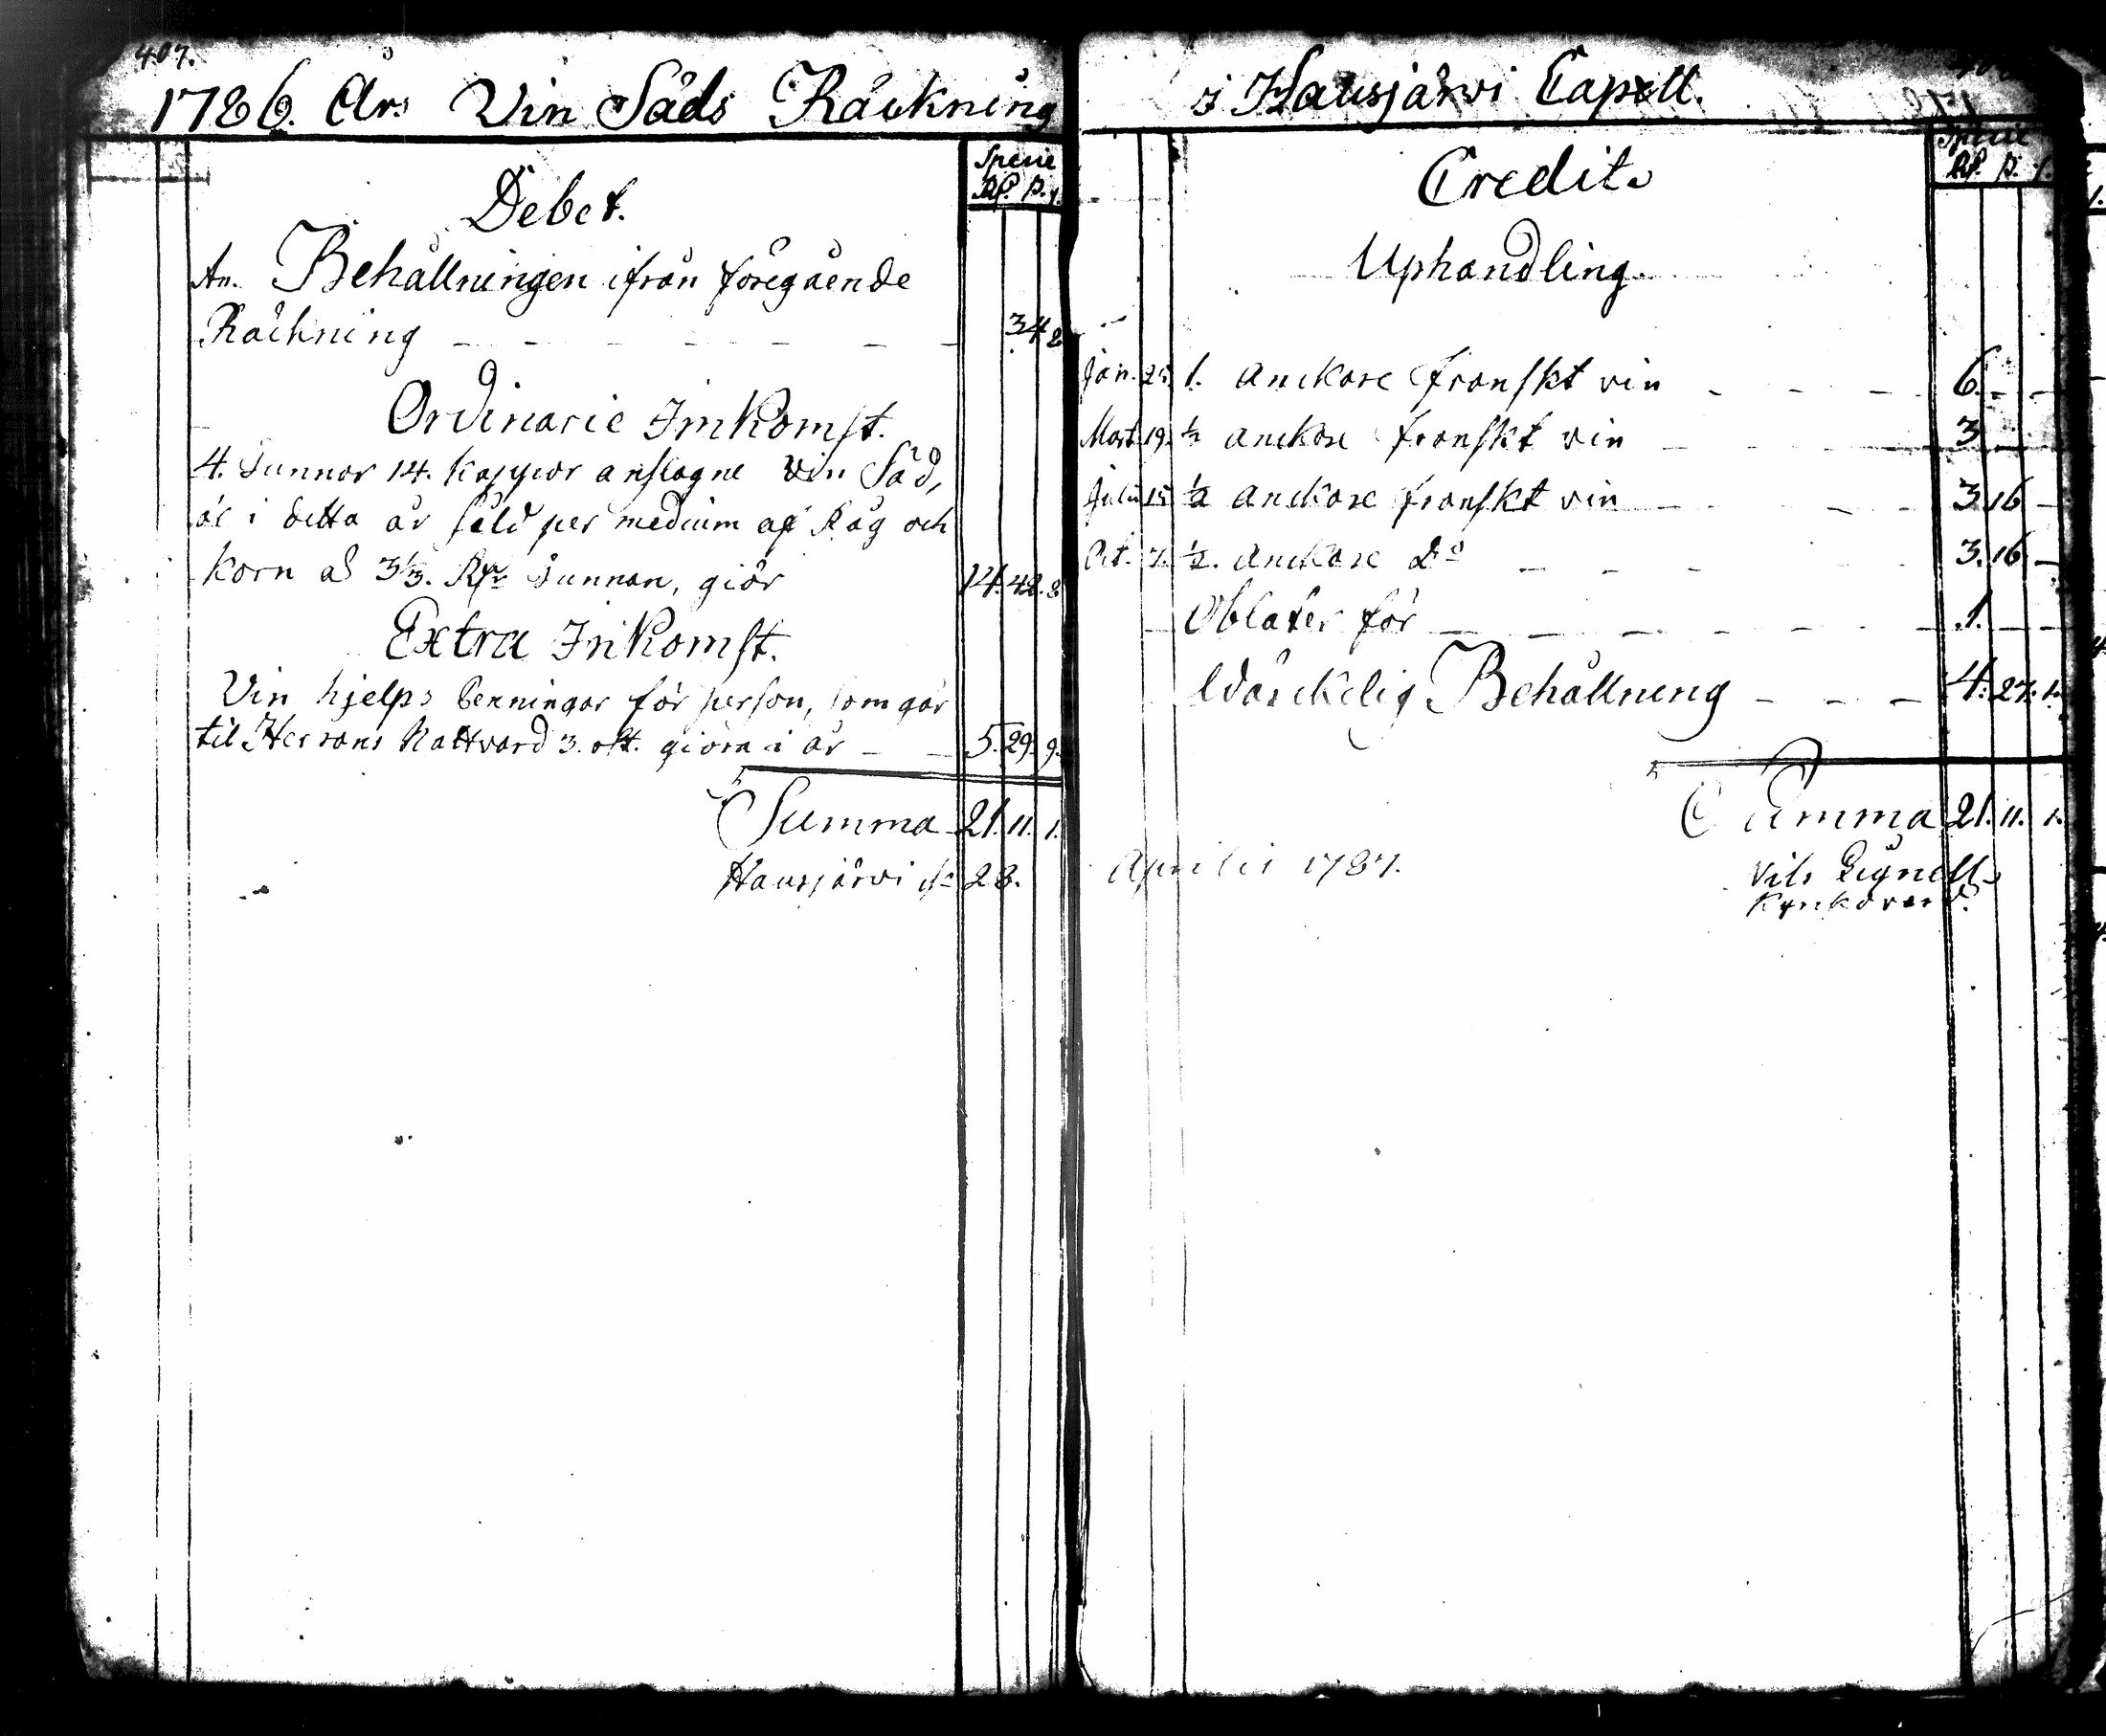 407.
1786. Års Vin Säds Räckning
Specie
Rd. s. r.
Debet.
An. Behållningen ifrån föregående
Räckning - - - - - - 34 8
Ordinarie Inkomst.
4. Tunnor 14. kappor anslagne Vin Säd,
är i detta år såld per medium af Råg och
Korn a 3⅓. Rdr Tunnan, giör 14. 42. 8.
Extra Inkomst.
Vin hjelps Penningar för person, som går
til Herrans Nattvard 3. öst. giöra i år - - 5. 29. 9.
Summa 21. 11. 1.
Hausjärvi d. 28.
i Hausjärvi Capell.
Specie
Rd. s. r.
Credit.
Uphandling.
Jan. 25. 1. Anckare franskt vin - - - - 6. - -
Mart. 19. ½ anckare franskt vin - - - - 3 - -
Julii 15 ½ anckare franskt vin - - - - 3. 16 -
Oct. 7. ½. anckare Do - - - - 3. 16 -
Oblater för - - - - - - 1. - -
Wärckelig Behållning - - - 4. 27. 1.
Summa 21. 11. 1.
Aprilis 1787.
Nils Rignell